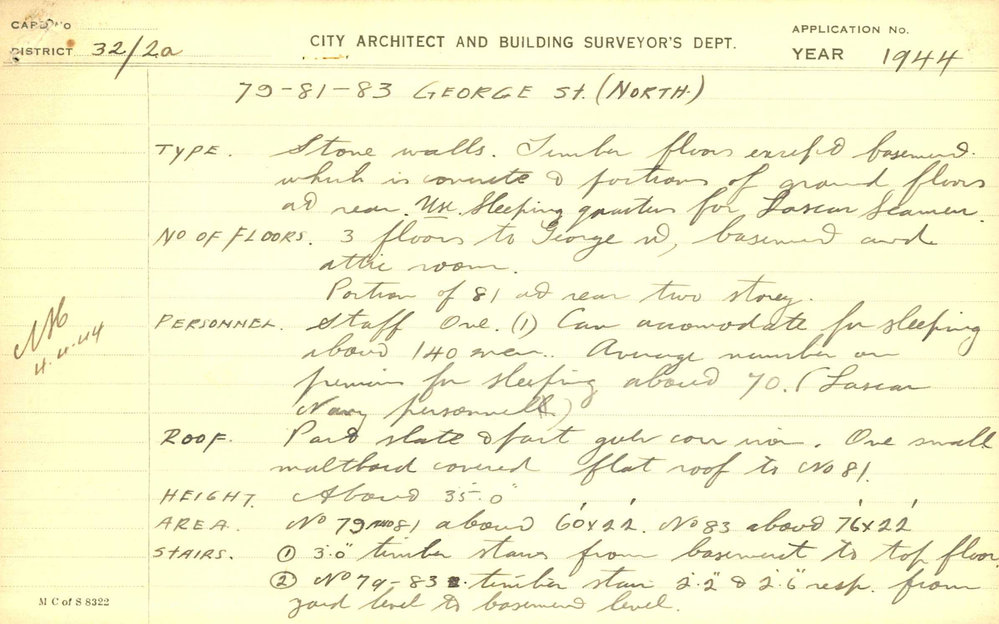 CARD No
DISTRICT 32/2a
CITY ARCHITECT AND BUILDING SURVEYOR'S DEPT.
APPLICATION No.
YEAR 1944
79-81-83 GEORGE St. (NORTH.)
TYPE. Stone walls. Timber floors except basement
which is concrete & portions of ground floors
at rear. Use. Sleeping quarters for Lascar Seamen.
NO OF FLOORS. 3 floors to George St, basement and
attic room.
Portion of 81 at rear two storey.
PERSONNEL. Staff One. (1) Can accomodate for sleeping
about 140 men. Average number on
premises for sleeping about 70. (Lascar
Navy personnel)
ROOF. Part slate & part galv corr iron. One small
malthoid covered flat roof to No 81.
HEIGHT. About 35'.0"
AREA. No 79 81 about 60'x22'. No 83 about 76'x22'
STAIRS. ① 3'.0" timber stairs from basement to top floor
② No 79-83 timber stair 2'.2" & 2'.6" resp. from
yard level to basement level.
4.4.44
M C of S 8322